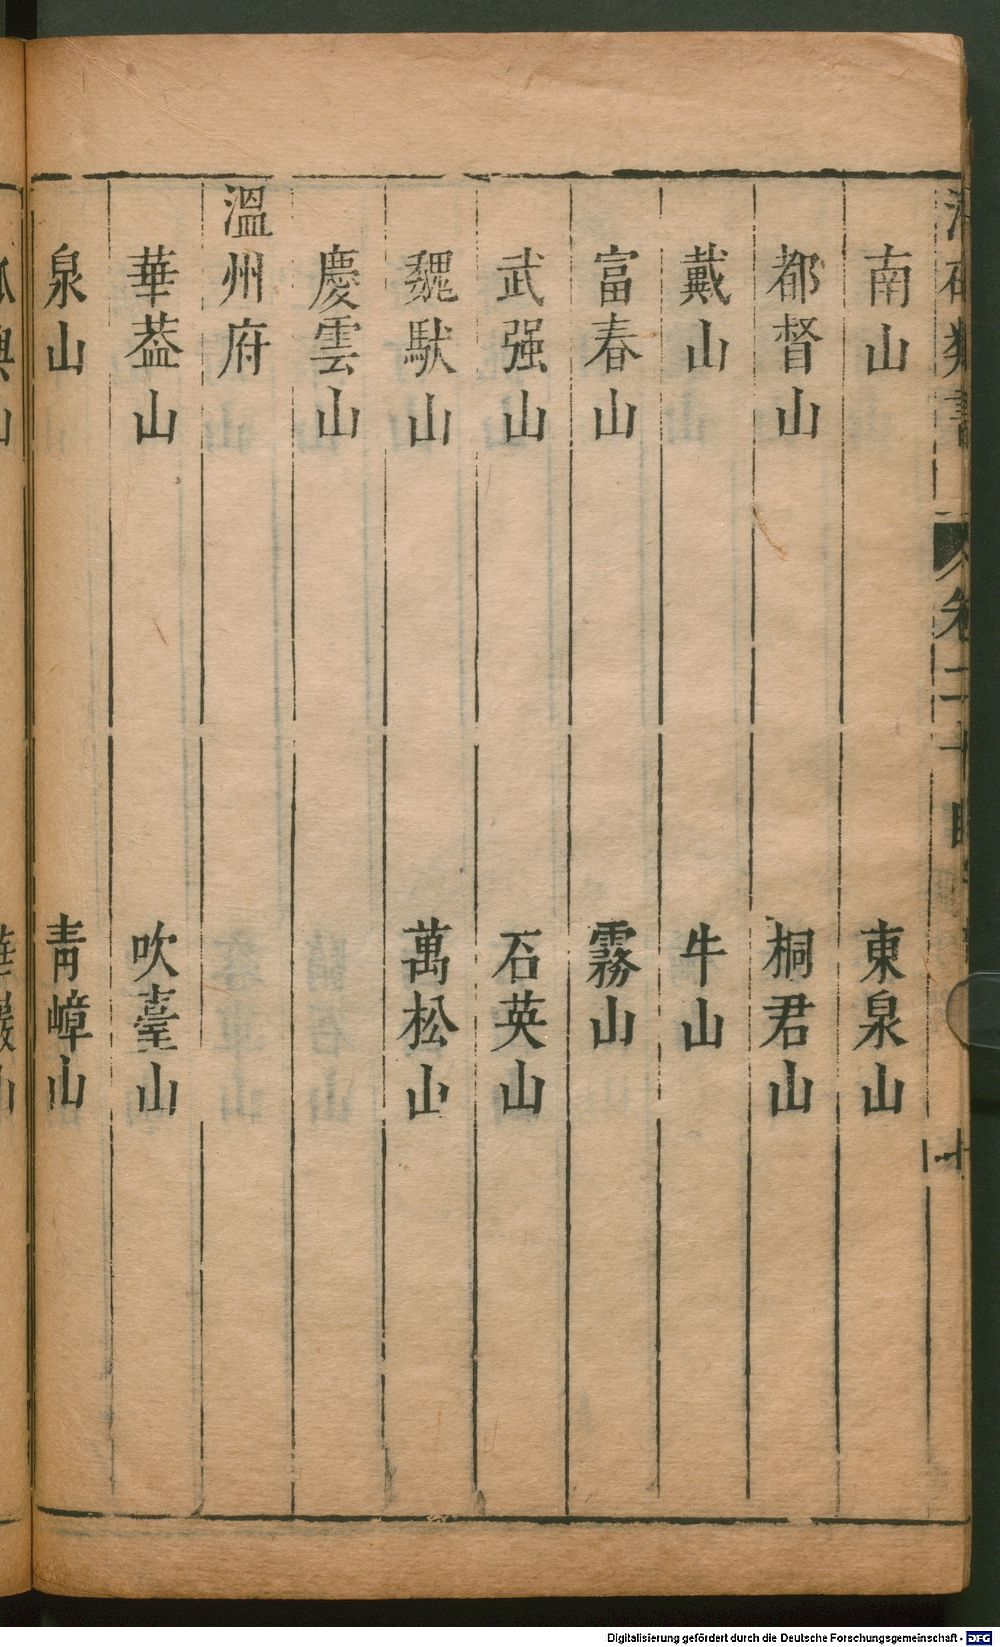 南山 東泉山
都督山 桐君山
戴山 牛山
富春山 霧山
武强山 石英山
魏馱山 萬松山
慶雲山
溫州府
華葢山 吹臺山
泉山 靑嶂山
Digitalisierung gefördert durch die Deutsche Forschungsgemeinschaft - DFG